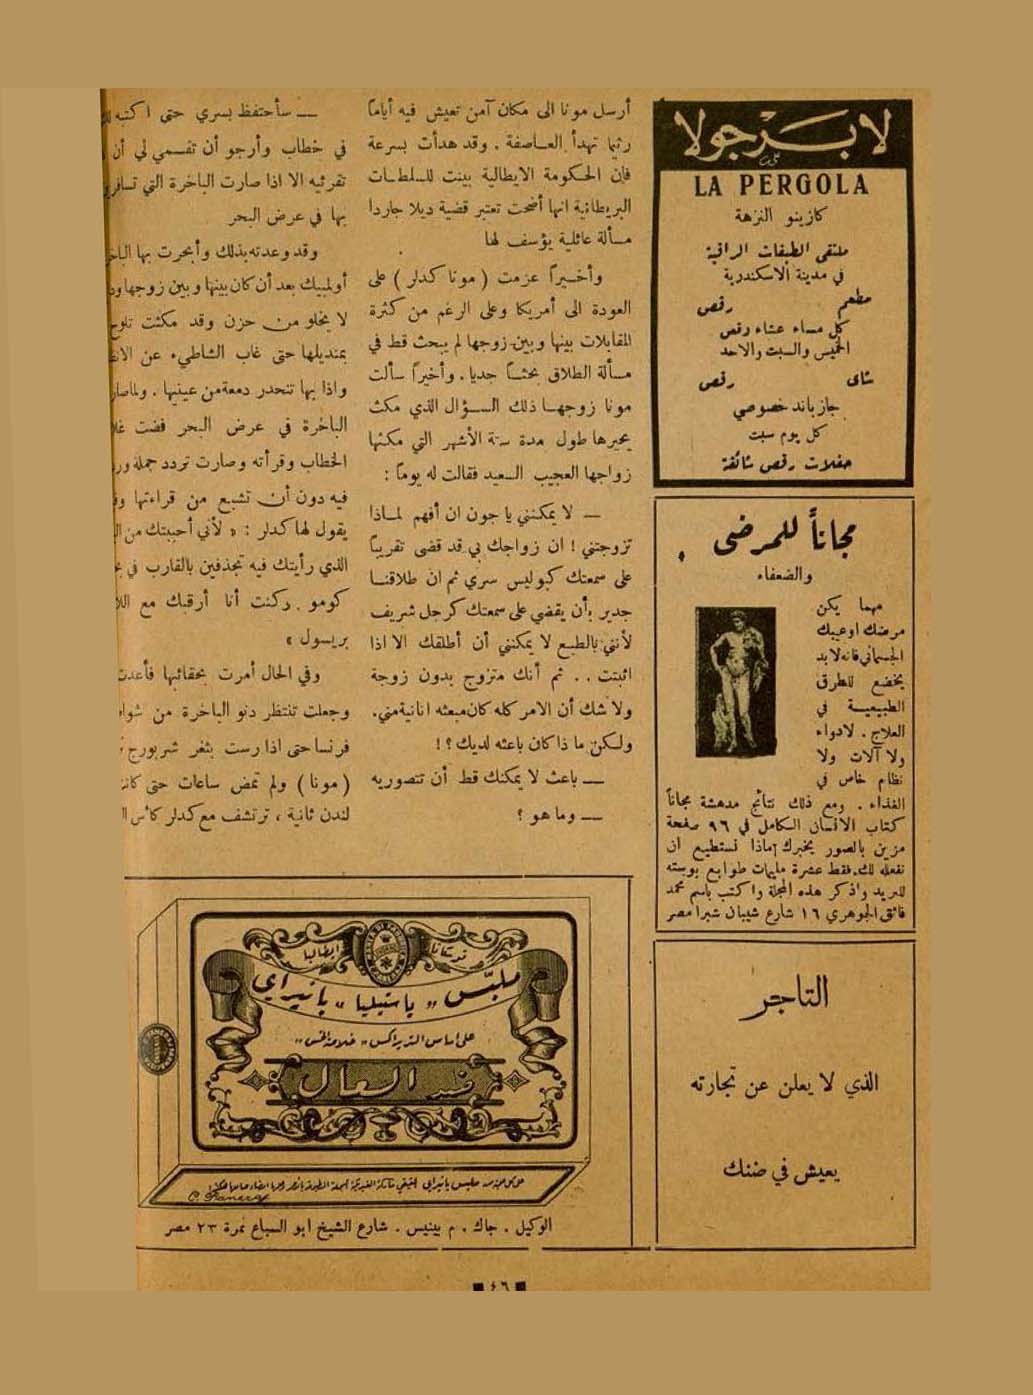 لابرجولا
LA PERGOLA
كازينو النزهة
ملتقى الطبقات الراقية
في مدينة الاسكندرية
مطعم رقص
كل مساء عشاء رقص
الخميس والسبت والاحد
شاى رقص
جازباند خصوصي
كل يوم سبت
حفلات رقص شائقة
مجاناً للمرضى
والضعفاء
مهما يكن
مرضك او عيبك
الجسماني فانه لا بد
يخضع للطرق
الطبيعية في
العلاج . لا دواء
ولا آلات ولا
نظام خاص في
الغذاء . ومع ذلك نتائج مدهشة مجاناً
كتاب الانسان الكامل في ٩٦ صفحة
مزين بالصور يخبرك ماذا نستطيع ان
نفعله لك . فقط عشرة مليمات طوابع بوسته
للبريد واذكر هذه المجلة واكتب باسم محمد
فائق الجوهري ١٦ شارع شيبان شبرا مصر
التاجر
الذي لا يعلن عن تجارته
يعيش في ضنك
أرسل مونا الى مكان آمن تعيش فيه أياماً
ريثما تهدأ العاصفة . وقد هدأت بسرعة
فان الحكومة الايطالية بينت للسلطات
البريطانية انها أضحت تعتبر قضية ديلا جاردا
مسألة عائلية يؤسف لها
وأخيراً عزمت ( مونا كدلر ) على
العودة الى أمريكا وعلى الرغم من كثرة
المقابلات بينها وبين زوجها لم يبحث قط في
مسألة الطلاق بحثاً جديا . وأخيراً سألت
مونا زوجها ذلك السؤال الذي مكث
يحيرها طول مدة ستة الأشهر التي مكثها
زواجها العجيب السعيد فقالت له يوماً :
— لا يمكنني يا جون ان أفهم لماذا
تزوجتني ! ان زواجك بي قد قضى تقريباً
على سمعتك كبوليس سري ثم ان طلاقنا
جدير بأن يقضي على سمعتك كرجل شريف
لأنني بالطبع لا يمكنني أن أطلقك الا اذا
اثبتت . . ثم أنك متزوج بدون زوجة
ولا شك أن الامر كله كان مبعثه انانية مني .
ولكن ما ذا كان باعثه لديك ؟ !
— باعث لا يمكنك قط أن تتصوريه
— وما هو ؟
— سأحتفظ بسري حتى اكتبه
في خطاب وأرجو أن تقسمي لي أن
تقرئيه الا اذا صارت الباخرة التي
بها في عرض البحر
وقد وعدته بذلك وأبحرت بها
أولمبيك بعد أن كان بينها وبين زوجها
لا يخلو من حزن وقد مكثت تلوح
بمنديلها حتى غاب الشاطيء عن
واذا بها تنحدر دمعة من عينيها . ولما
الباخرة في عرض البحر فضت
الخطاب وقرأته وصارت تردد جملة
فيه دون أن تشبع من قراءتها
يقول لها كدلر : « لأني أحببتك من
الذي رأيتك فيه تجذفين بالقارب في
كومو . وكنت أنا أرقبك مع
بريسول »
وفي الحال أمرت بحقائبها فأعدت
وجعلت تنتظر دنو الباخرة من
فرنسا حتى اذا رست بثغر شربورج
( مونا ) ولم تمض ساعات حتى
لندن ثانية ، ترتشف مع كدلر كأس
توسكانا ايطاليا
ملبّس « باستيليا » بانيراي
ضد السعال
الوكيل . جاك . م بينيس . شارع الشيخ ابو السباع نمرة ٢٣ مصر
٤٦